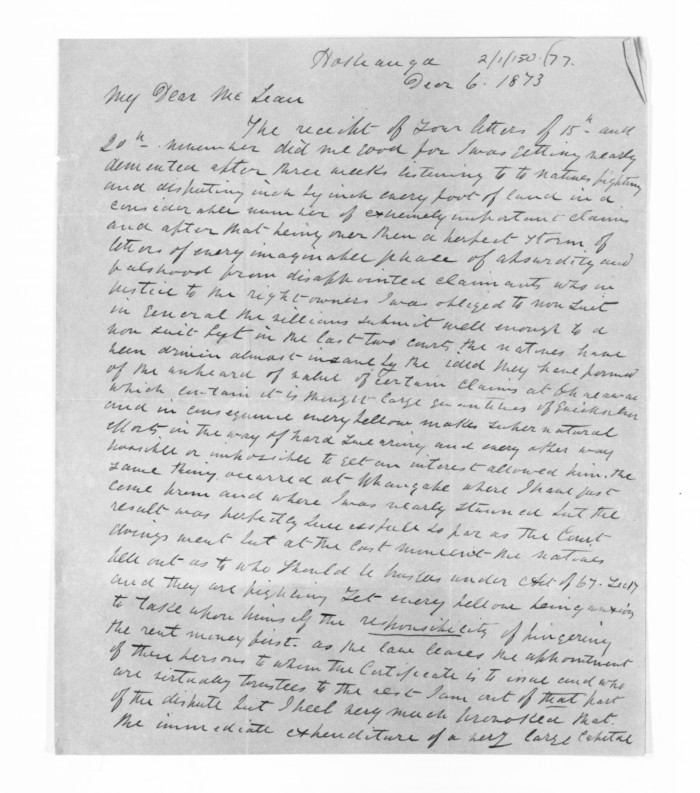 Hokianga 2/1/150/77.
Decr 6. 1873
My Dear McLean
The receipt of your letters of 15th and
20th November did me good for I was getting nearly
demented after three weeks listening to natives fighting
and disputing inch by inch every foot of land in a
considerable number of extremely important claims
and after that being over then a perfect storm of
letters of every imaginable phase of absurdity and
falshood from disappointed claimants who in
justice to the right owners I was obliged to non suit
in General the villians submit well enough to a
non suit but in the last two courts the natives have
been driven almost insane by the idea they have formed
of the unheard of value of certain claims at Ohaeawae
which contain it is thought large quantities of Quicksilver
and in consequence every fellow makes supernatural
efforts in the way of hard swearing and every other way
possible or impossible to get an interest allowed him. the
same thing occurred at Whangape where I have just
come from and where I was nearly stunned but the
result was perfectly successfull so far as the Court
doings went but at the last moment the natives
fell out as to who should be trustees under Act of 67. Sec 17
and they are fighting yet every fellow being anxious
to take upon himself the responsibility of fingering
the rent money first. as the law leaves the appointment
of these persons to whom the Certificate is to issue and who
are virtually trustees to the rest I am out of that part
of the dispute but I feel very much provoked that
the immediate expenditure of a very large capital